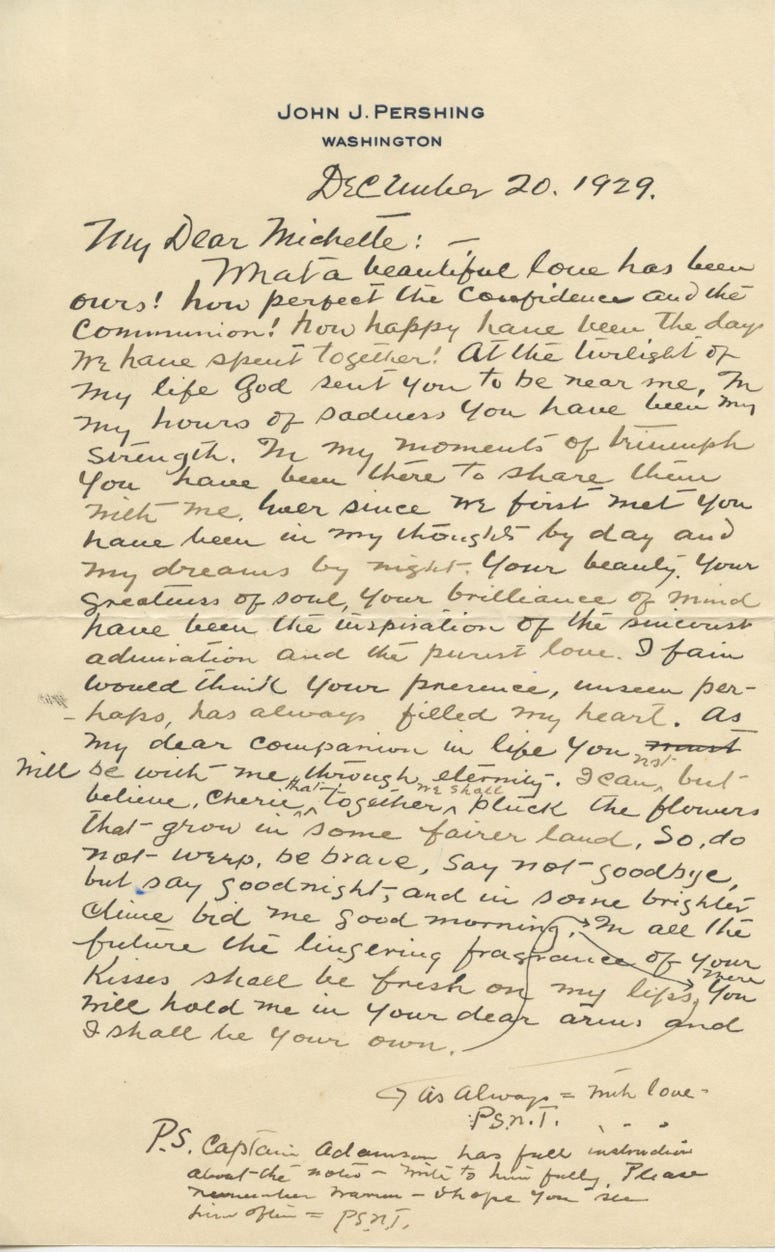 JOHN J. PERSHING
WASHINGTON
December 20. 1929.
My Dear Michette: —
What a beautiful love has been
ours! how perfect the confidence and the
communion! how happy have been the days
we have spent together! At the twilight of
my life God sent you to be near me. In
my hours of sadness you have been my
strength. In my moments of triumph
you have been there to share them
with me. Ever since we first met you
have been in my thoughts by day and
my dreams by night. Your beauty, your
greatness of soul, your brilliance of mind
have been the inspiration of the sincerest
admiration and the purest love. I fain
would think your presence, unseen per-
haps, has always filled my heart. As
my dear companion in life you must
will be with me through eternity. I can not but
believe, cherie that together we shall pluck the flowers
that grow in some fairer land. So, do
not weep, be brave, say not goodbye,
but say goodnight, and in some brighter
clime bid me good morning. In all the
future the lingering fragrance of your
kisses shall be fresh on my lips. You
will hold me in your dear arms and
I shall be your own.
As Always = With love -
P.S.N.T.
P.S. Captain Adamson has full instruction
about the notes - write to him fully. Please
remember Warren - I hope you see
him often = P.S.N.T.